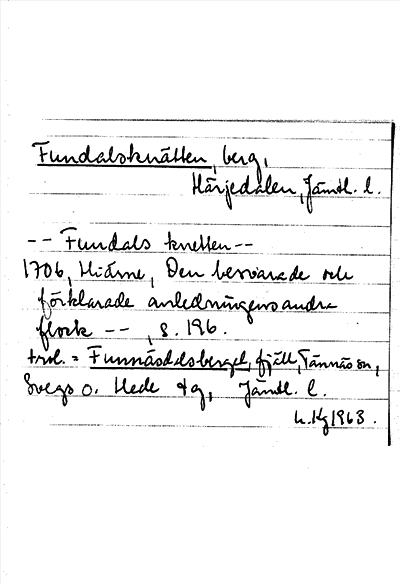 Fundalsknätten, berg,
Härjedalen, Jämtl. l.
-- Fundals knetten --
1706, Hiärne, Den besvarade och
förklarade anledningens andra
flock --, s. 196.
trol. = Funnäsdalsberget, fjäll, Tännäs sn,
Svegs o. Hede tg, Jämtl. l.
1963.